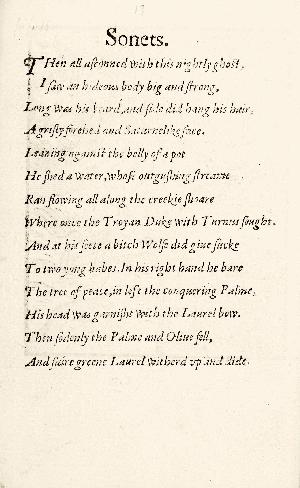 Sonets.
THen all astonned with this nightly ghost,
I saw an hideous body big and strong,
Long was his beard, and side did hang his hair,
A grisly forehed and Saturnelike face.
Leaning against the belly of a pot
He shed a water, whose outgushing streame
Ran flowing all along the creekie shoare
Where once the Troyan Duke with Turnus fought.
And at his feete a bitch Wolfe did giue sucke
To two yong babes. In his right hand he bare
The tree of peace, in left the conquering Palme,
His head was garnisht with the Laurel bow.
Then sodenly the Palme and Oliue fell,
And faire greene Laurel witherd vp and dide.